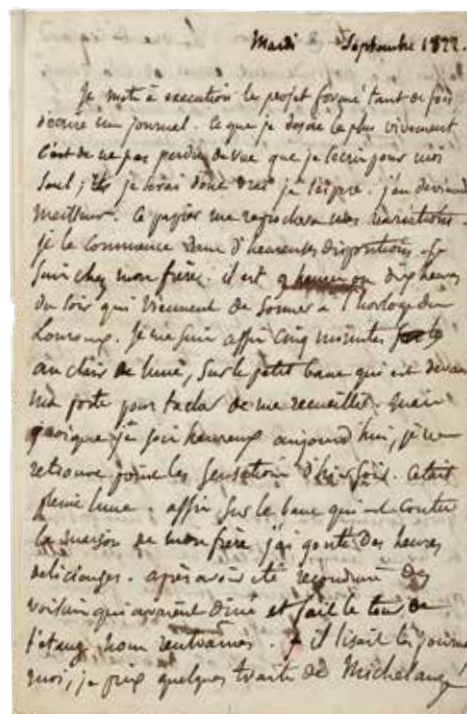 Mardi 3 Septembre 1822.
Je mets à execution le projet formé tant de fois
d'écrire un journal. Ce que je desire le plus vivement
c'est de ne pas perdre de vue que je l'écris pour moi
seul; je serai donc vrai je l'espère. j'en deviendrai
meilleur. Ce papier me reprochera mes variations.
je le commence dans d'heureuses dispositions. Je
suis chez mon frère. il est 9 heures ou dix heures
du soir qui viennent de sonner à l'horloge du
Louroux. Je me suis assis cinq minutes
au clair de lune, sur le petit banc qui est devant
ma porte pour tacher de me recueillir. Mais
quoique je sois heureux aujourd'hui, je ne
retrouve point les sensations d'hier soir. C'était
pleine lune. assis sur le banc qui est contre
la maison de mon frère j'ai gouté des heures
delicieuses. après avoir été reconduire des
voisins qui avaient diné et fait le tour de
l'étang nous rentrames. il lisait les journaux
moi, je pris quelques traits de Michelange